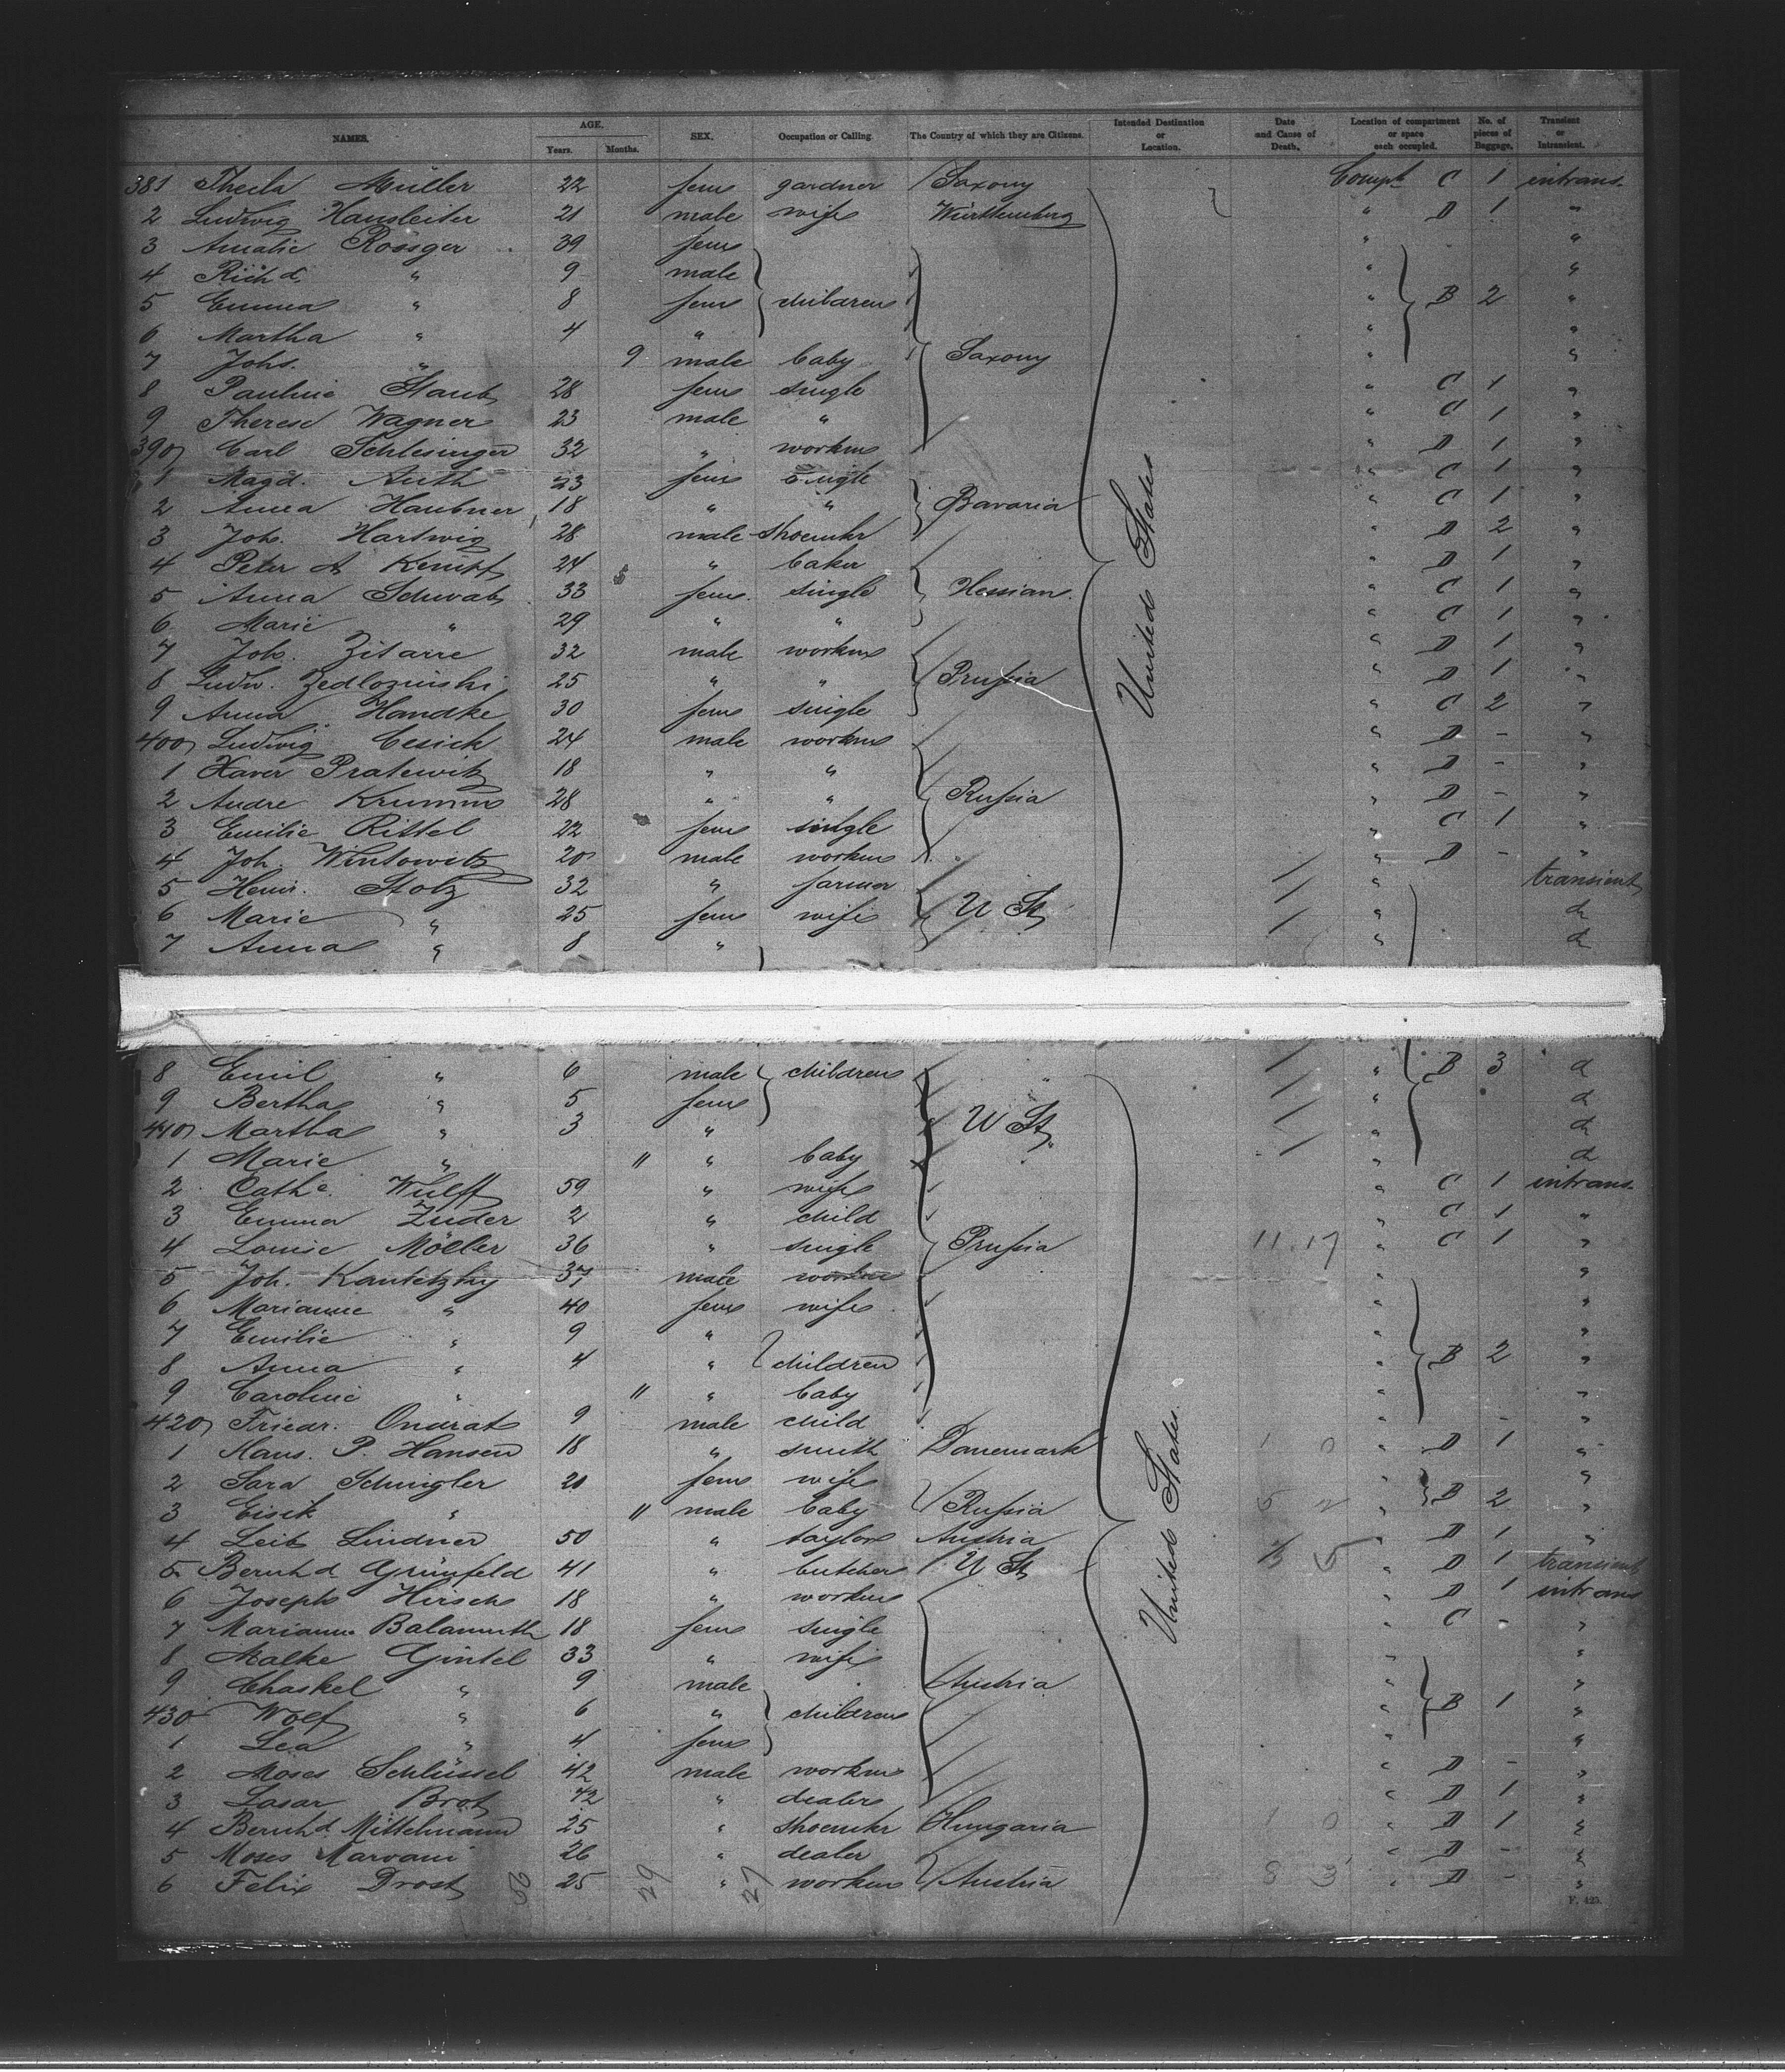 NAMES. AGE. Years. Months. SEX. Occupation or Calling. The Country of which they are Citizens. Intended Destination or Location. Date and Cause of Death. Location of compartment or space each occupied. No. of pieces of Baggage. Transient or Intransient.
381 Thecla Müller 22 fem gardner Saxony Compt C 1 intrans.
2 Ludwig Hausleiter 21 male wife Württemberg " D 1 "
3 Amalie Rössger 39 fem " "
4 Richd. " 9 male " "
5 Emma " 8 fem children " B 2 "
6 Martha " 4 " " "
7 Johs. " 9 male baby Saxony " "
8 Pauline Staub 28 fem single " C 1 "
9 Therese Wagner 23 male " " C 1 "
390 Carl Schlesinger 32 " workm " D 1 "
1 Magd. Auth 23 fem single " C 1 "
2 Anna Haubner 18 " " Bavaria " C 1 "
3 Joh. Hartwig 28 male shoemkr " D 2 "
4 Peter A Kempf 24 " baker " D 1 "
5 Anna Schwab 33 fem. single Hessian. " C 1 "
6 Marie " 29 " " " C 1 "
7 Joh. Zitarre 32 male workm " D 1 "
8 Ludw. Zedlozinski 25 " " Prussia " D 1 "
9 Anna Handke 30 fem single " C 2 "
400 Ludwig Cesich 24 male workm " D - "
1 Xaver Pratewitz 18 " " " D - "
2 Andre Krumm 28 " " Russia " D - "
3 Emilie Rittel 22 fem single " C 1 "
4 Joh. Wintowitz 20 male workm " D - "
5 Heinr. Stolz 32 " farmer " transient
6 Marie " 25 fem wife U St " d
7 Anna " 8 " " d
United States
8 Emil " 6 male children " B 3 d
9 Bertha " 5 fem " d
410 Martha " 3 " U St. " d
1 Marie " 11 " baby " d
2 Cathe. Wulff 59 " wife " C 1 intrans.
3 Emma Zuder 2 " child " C 1 "
4 Louise Möller 36 " single Prussia 11.17 " C 1 "
5 Joh. Kantetzky 37 male workm " "
6 Marianne " 40 fem wife " "
7 Emilie " 9 " " "
8 Anna " 4 " children " B 2 "
9 Caroline " 11 " baby " "
420 Friedr. Ondrat 9 male child " - "
1 Hans. P. Hansen 18 " smith Danemark 1 0 " D 1 "
2 Sara Schingler 20 fem wife " "
3 Eisik " 11 male baby Russia 5 2 " B 2 "
4 Leib Lindner 50 " taylor Austria " D 1 "
5 Bernhd Grünfeld 41 " butcher U St 5 " D 1 transient
6 Joseph Hirsch 18 " workm " D 1 intrans
7 Mariann Balamuth 18 fem single " C - "
8 Malke Gintel 33 " wife " "
9 Chaskel " 9 male Austria " "
430 Wolf " 6 " children " B 1 "
1 Lea " 4 fem " "
2 Moses Schlüssel 42 male workm " D - "
3 Lasar Brot 42 " dealer " D 1 "
4 Bernhd. Mittelmann 25 " shoemkr Hungaria 1 0 " D 1 "
5 Moses Marvani 26 " dealer " D - "
6 Felix Drost 25 " workm Austria 8 3 " D - "
United States.
28 29 27
F. 425.